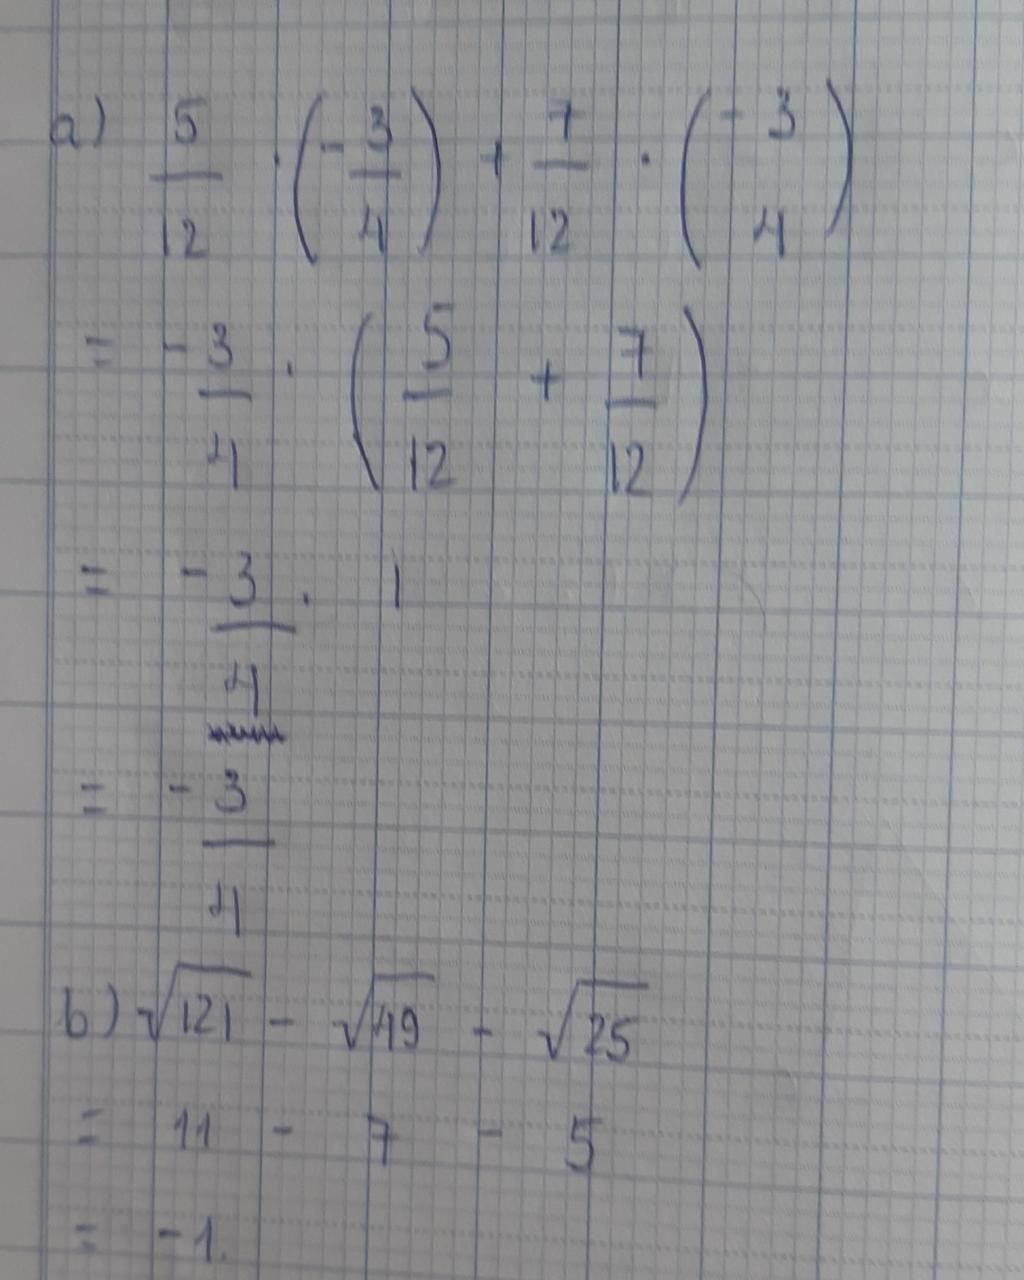 a) 5/12 · (-3/4) + 7/12 · (-3 4)
= -3/4 · (5/12 + 7/12)
= -3/4 . 1
= -3/4
b) √121 - √49 - √25
= 11 - 7 - 5
= -1.